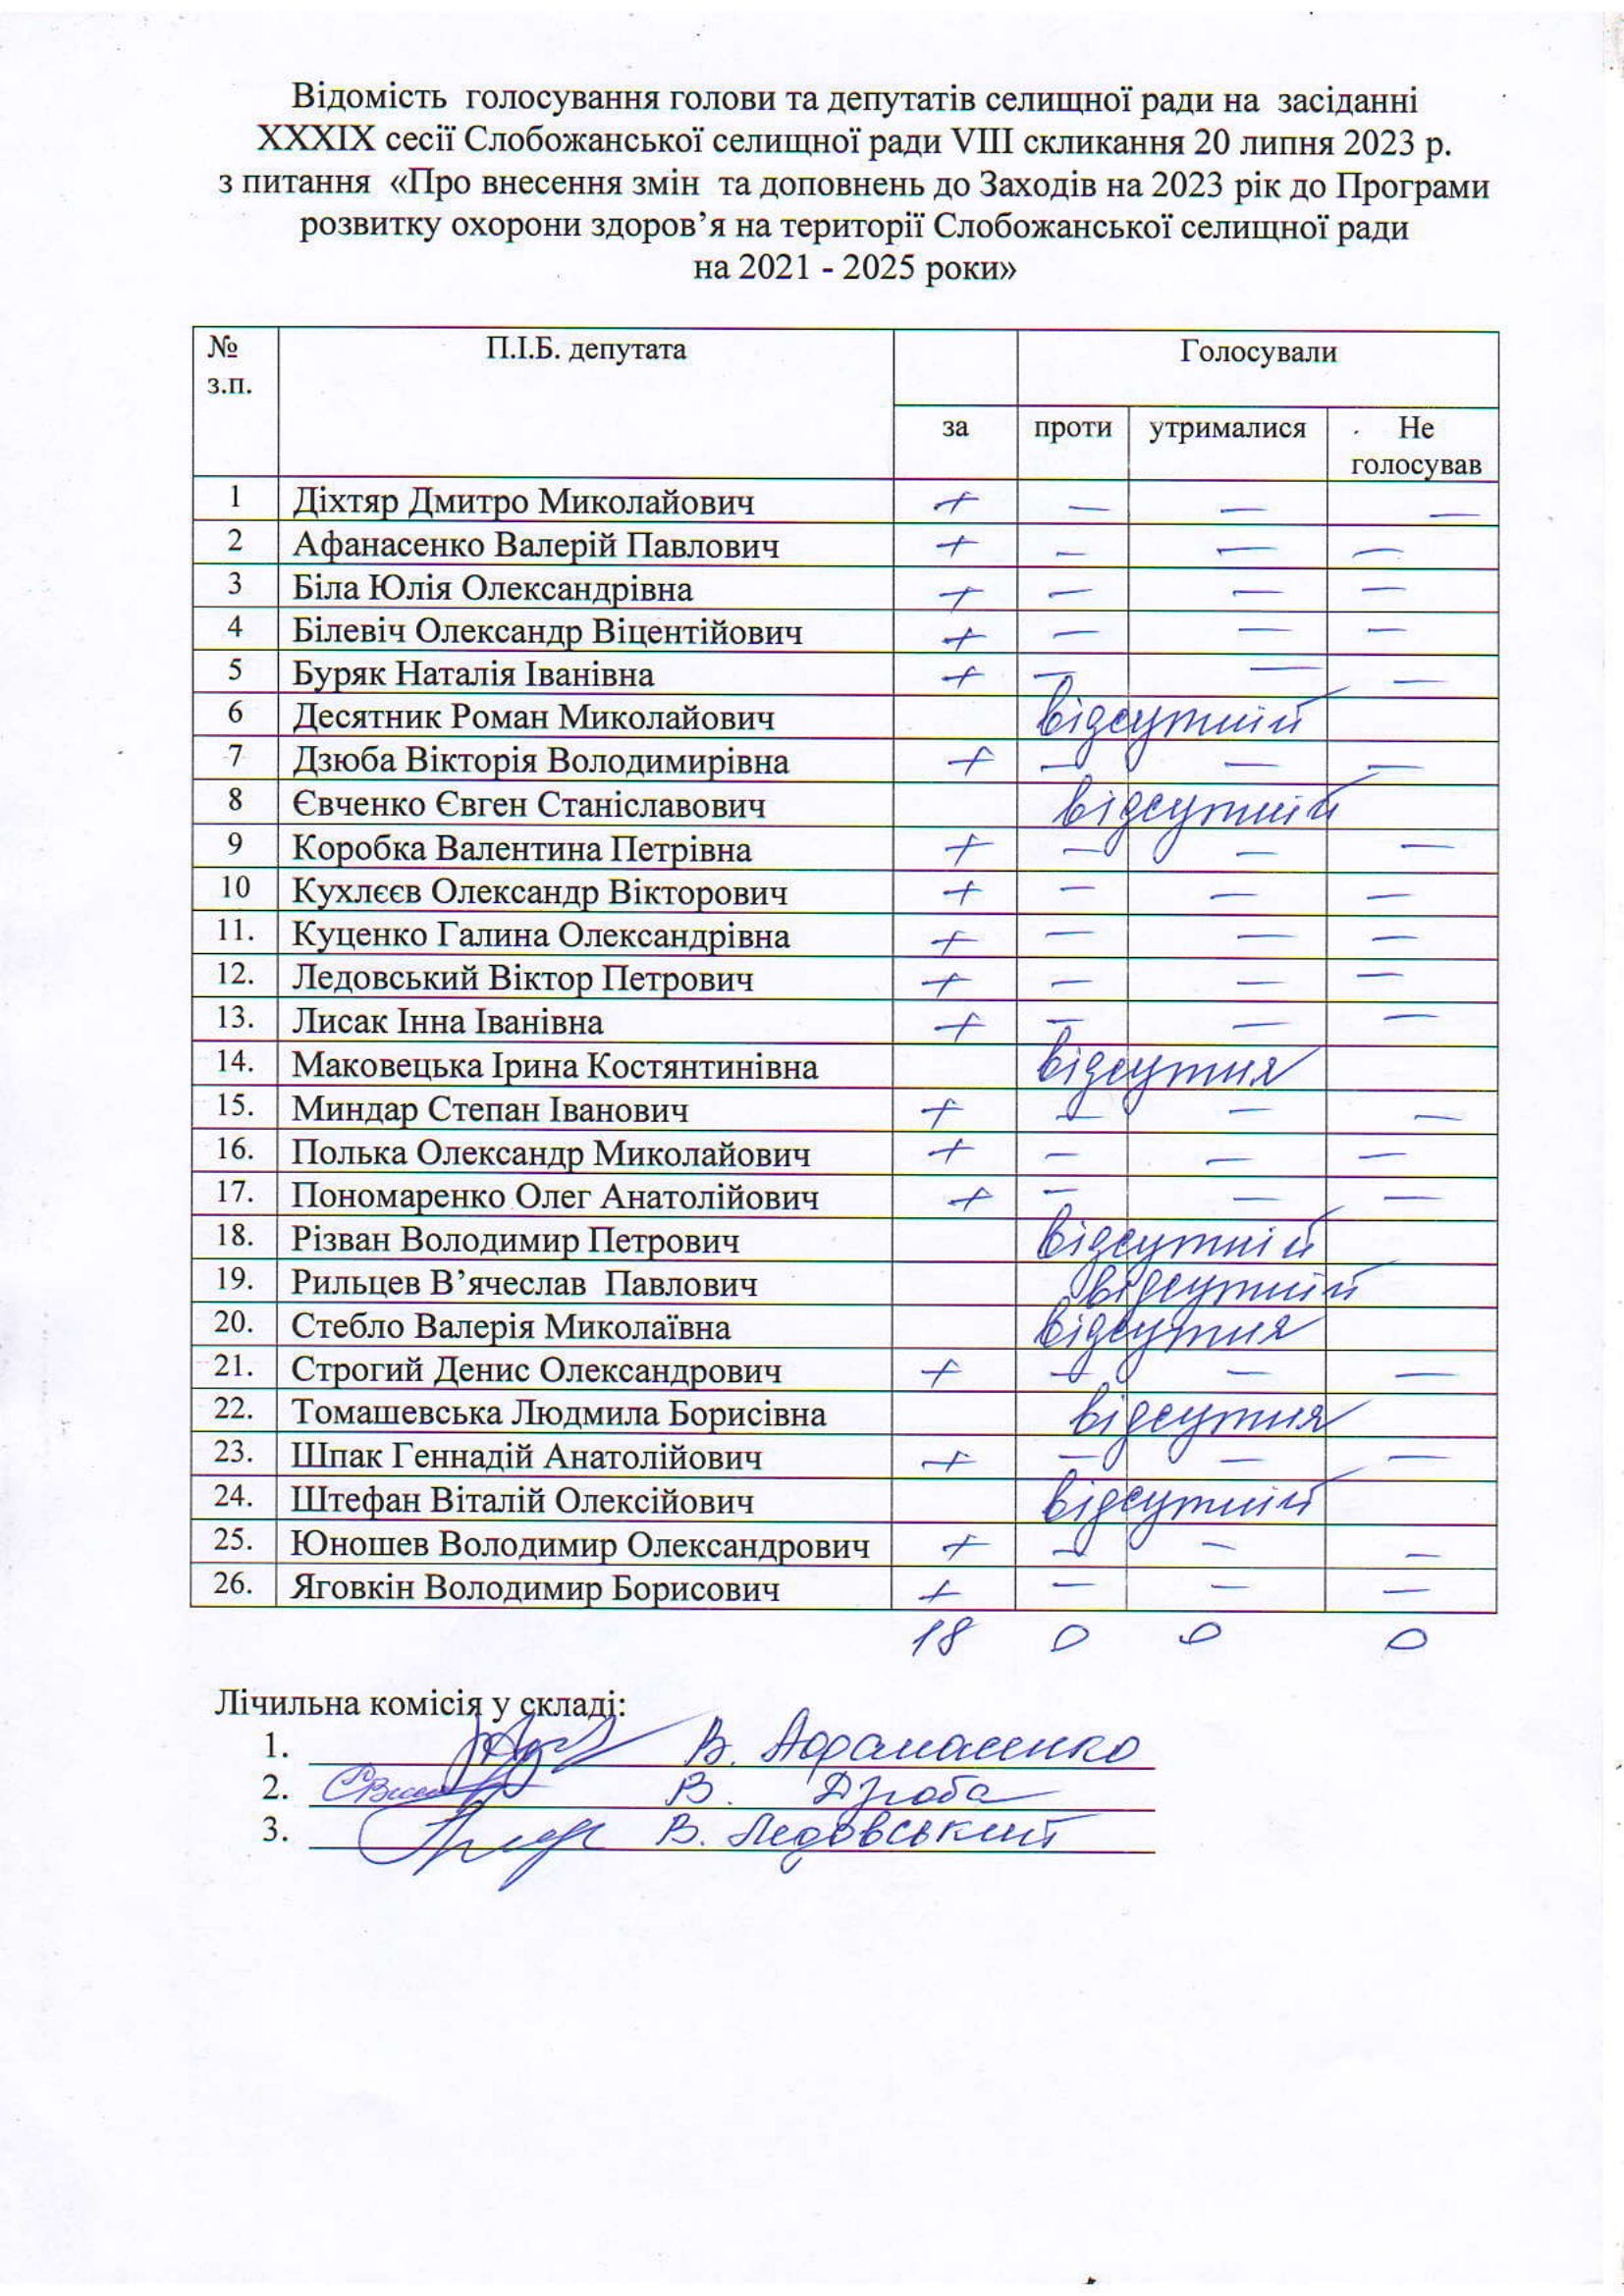 Відомість голосування голови та депутатів селищної ради на засіданні
XXXIX сесії Слобожанської селищної ради VIII скликання 20 липня 2023 р.
з питання «Про внесення змін та доповнень до Заходів на 2023 рік до Програми
розвитку охорони здоров’я на території Слобожанської селищної ради
на 2021 - 2025 роки»
№ з.п. П.І.Б. депутата Голосували
за проти утрималися Не голосував
1 Діхтяр Дмитро Миколайович + — — —
2 Афанасенко Валерій Павлович + — — —
3 Біла Юлія Олександрівна + — — —
4 Білевіч Олександр Віцентійович + — — —
5 Буряк Наталія Іванівна + — — —
6 Десятник Роман Миколайович відсутній
7 Дзюба Вікторія Володимирівна + — — —
8 Євченко Євген Станіславович відсутній
9 Коробка Валентина Петрівна + — — —
10 Кухлєєв Олександр Вікторович + — — —
11. Куценко Галина Олександрівна + — — —
12. Ледовський Віктор Петрович + — — —
13. Лисак Інна Іванівна + — — —
14. Маковецька Ірина Костянтинівна відсутня
15. Миндар Степан Іванович + — — —
16. Полька Олександр Миколайович + — — —
17. Пономаренко Олег Анатолійович + — — —
18. Різван Володимир Петрович відсутній
19. Рильцев В’ячеслав Павлович відсутній
20. Стебло Валерія Миколаївна відсутня
21. Строгий Денис Олександрович + — — —
22. Томашевська Людмила Борисівна відсутня
23. Шпак Геннадій Анатолійович + — — —
24. Штефан Віталій Олексійович відсутній
25. Юношев Володимир Олександрович + — — —
26. Яговкін Володимир Борисович + — — —
18 0 0 0
Лічильна комісія у складі:
1. В. Афанасенко
2. В. Дзюба
3. В. Ледовський